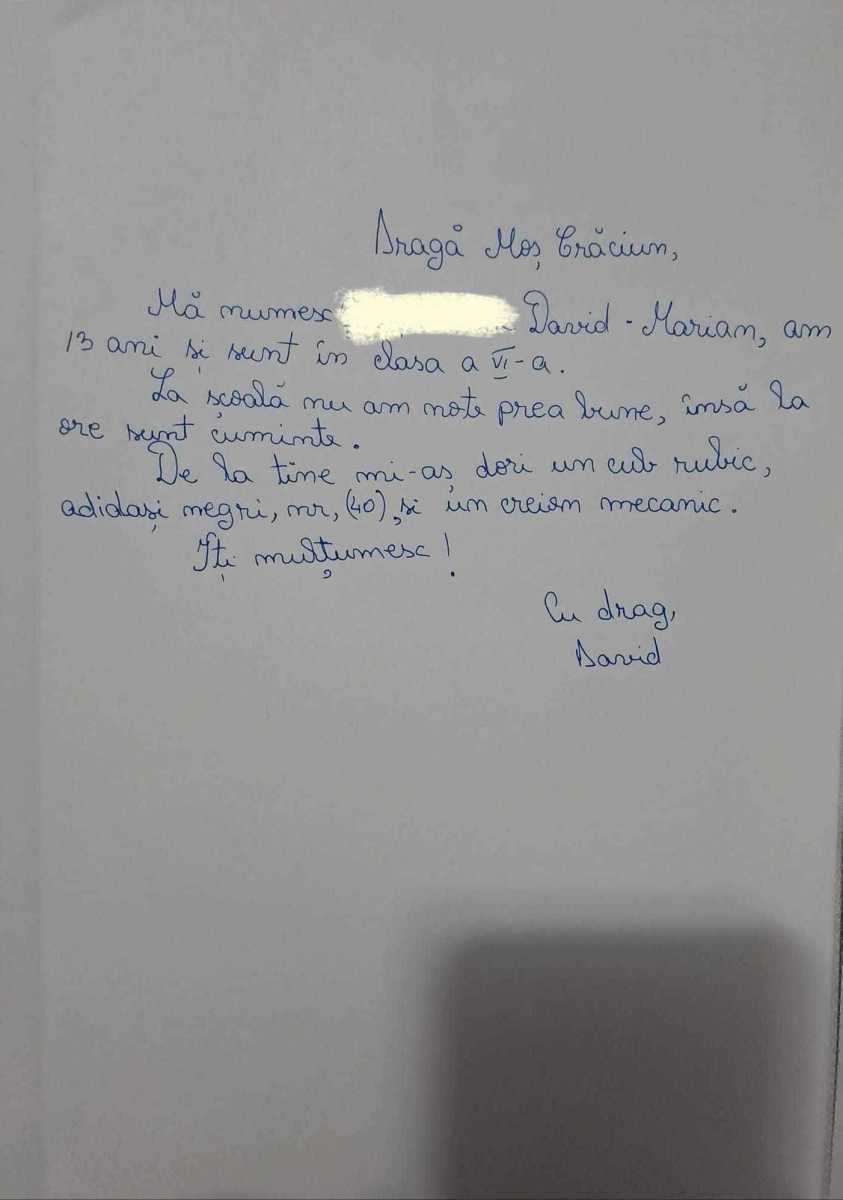 Dragă Moș Crăciun,
Mă numesc David - Marian, am
13 ani și sunt în clasa a VI-a.
La școală nu am note prea bune, însă la
ore sunt cuminte.
De la tine mi-aș dori un cub rubic,
adidași negri, nr, (40), și un creion mecanic.
Iți mulțumesc!
Cu drag,
David